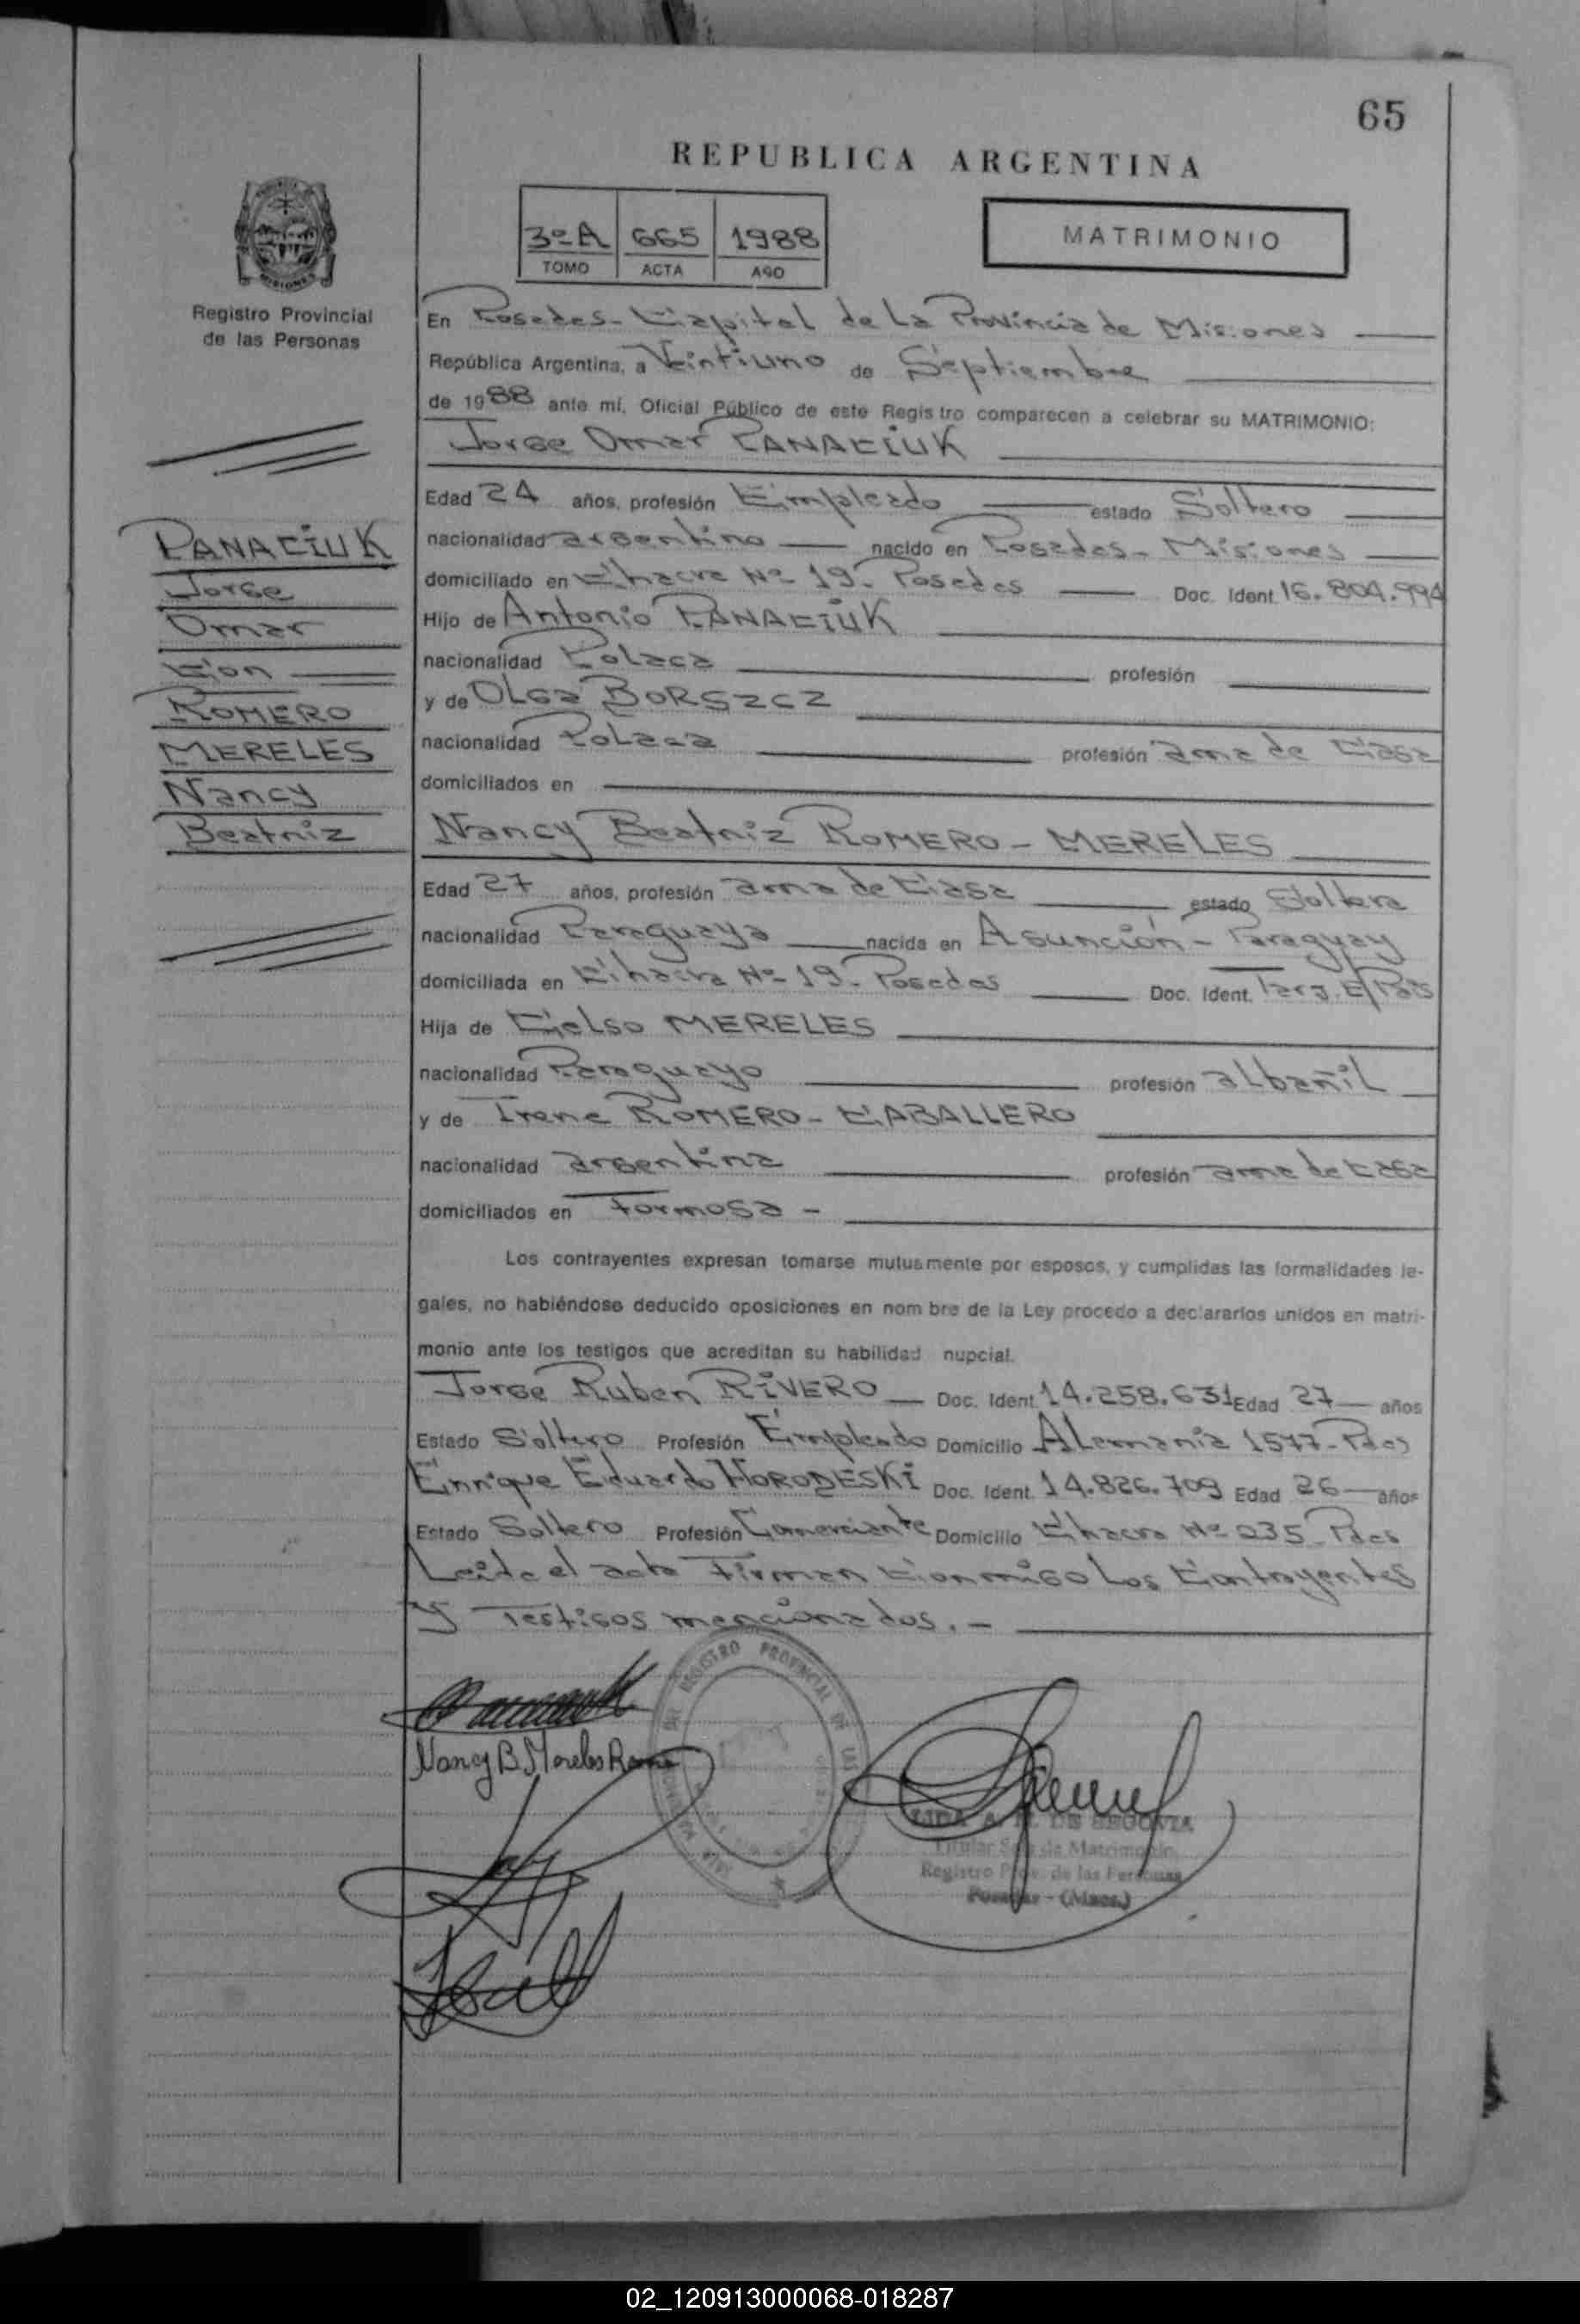 65
REPUBLICA ARGENTINA
3º A 665 1988
TOMO ACTA AÑO
MATRIMONIO
Registro Provincial
de las Personas
En Posadas - Capital de La Provincia de Misiones
República Argentina, a Veintiuno de Septiembre
de 1988 ante mí, Oficial Público de este Registro comparecen a celebrar su MATRIMONIO:
Jorge Omar PANACIUK
Edad 24 años, profesión Empleado estado Soltero
nacionalidad argentino nacido en Posadas - Misiones
domiciliado en Chacra Nº 19 - Posadas Doc. Ident. 16.804.994
Hijo de Antonio PANACIUK
nacionalidad Polaca profesión
y de Olga BORSZCZ
nacionalidad Polaca profesión ama de Casa
domiciliados en
Nancy Beatriz ROMERO - MERELES
Edad 27 años, profesión ama de Casa estado Soltera
nacionalidad Paraguaya nacida en Asunción - Paraguay
domiciliada en Chacra Nº 19 - Posadas Doc. Ident. Tarj. E/ País
Hija de Celso MERELES
nacionalidad Paraguayo profesión albañil
y de Irene ROMERO - CABALLERO
nacionalidad argentina profesión ama de Casa
domiciliados en Formosa -
Los contrayentes expresan tomarse mutuamente por esposos, y cumplidas las formalidades le-
gales, no habiéndose deducido oposiciones en nombre de la Ley procedo a declararlos unidos en matri-
monio ante los testigos que acreditan su habilidad nupcial.
Jorge Ruben RIVERO Doc. Ident. 14.258.631 Edad 27 años
Estado Soltero Profesión Empleado Domicilio Alemania 1577 - Pdas
Enrique Eduardo HORODESKI Doc. Ident. 14.826.709 Edad 26 años
Estado Soltero Profesión Comerciante Domicilio Chacra Nº 235 - Pdas
Leida el acta Firman Conmigo Los Contrayentes
y Testigos mencionados. -
PANACIUK
Jorge
Omar
Con
ROMERO
MERELES
Nancy
Beatriz
Nancy B. Mereles Romero
REGISTRO PROVINCIAL DE LAS
DE SEGOVIA
Titular Sec. de Matrimonio
Registro Prov. de las Personas
Posadas - (Mnes.)
02_120913000068-018287